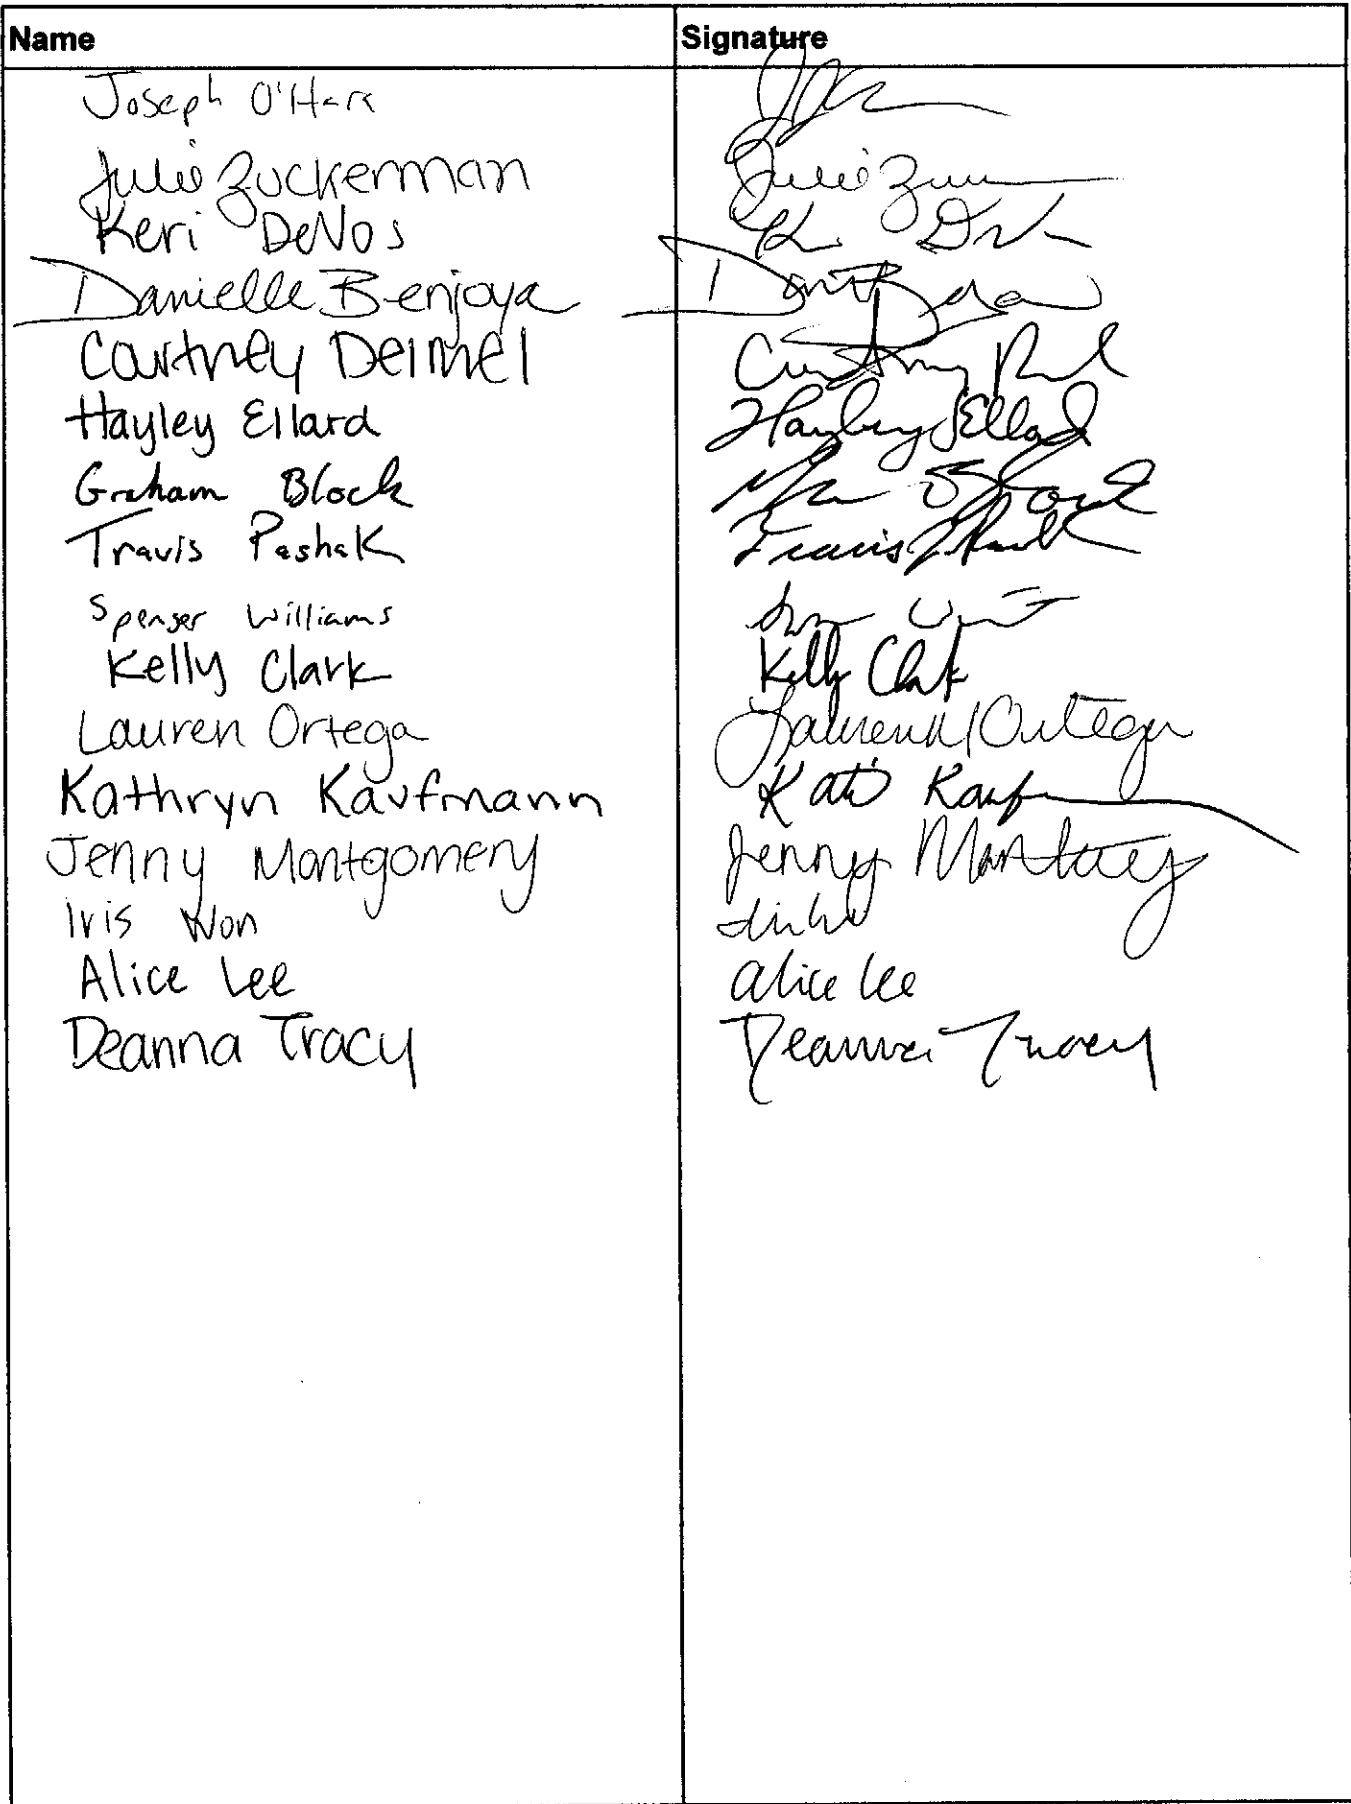 Name Signature
Joseph O'Hara
Julie Zuckerman Julie
Keri DeVos
Danielle Benjoya
Courtney Deimel Courtney
Hayley Ellard Hayley Ellard
Graham Block
Travis Pashak Travis
Spenser Williams
Kelly Clark Kelly Clark
Lauren Ortega Lauren Ortega
Kathryn Kaufmann Kati
Jenny Montgomery Jenny
Iris Won
Alice Lee alice lee
Deanna Tracy Deanna Tracy